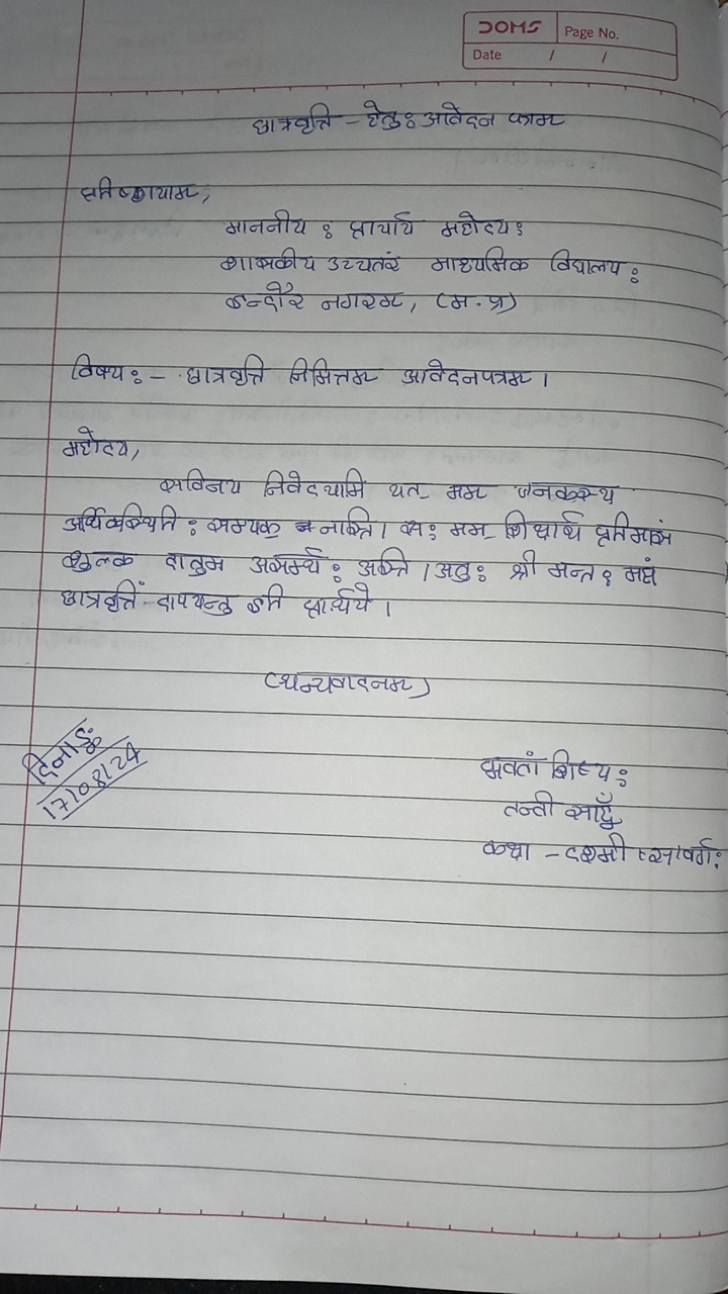 DOMS
Page No.
Date / /
छात्रवृत्ति - हेतु: आवेदन पत्रम
प्रतिष्ठायाम,
माननीय : प्राचार्य महोदय:
शासकीय उच्चतरं माध्यमिक विद्यालय:
इन्दौर नगरम, (म.प्र)
विषय: - छात्रवृत्ति निमित्तम आवेदनपत्रम।
महोदय,
सविनय निवेदयामि यत मम जनकस्य
आर्थिकस्थिति: सम्यक नास्ति। स: मम शिक्षार्थ प्रतिमासं
शुल्क दातुम असमर्थ: अस्ति। अतु: श्री मन्त: मह्यं
छात्रवृत्तिं दापयन्तु इति प्रार्थये।
(धन्यवादनम)
दिनाङ्क:
17/08/24
भवतां शिष्य:
तन्वी साहुँ
कक्षा - दशमी 'स' वर्ग: